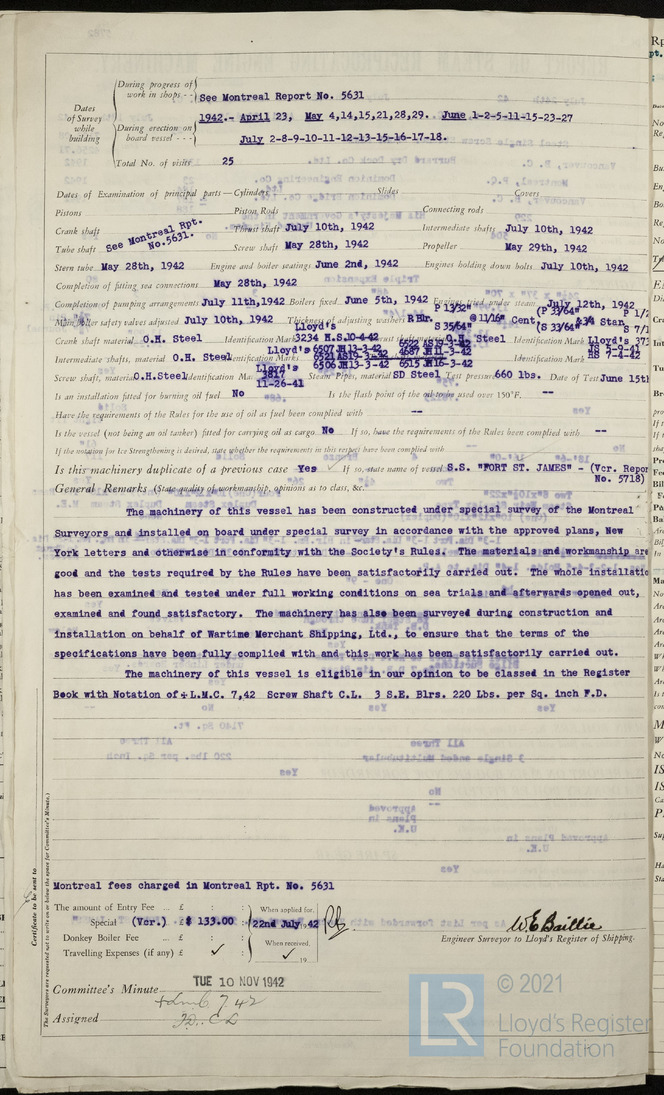 During progress of
work in shops - - See Montreal Report No. 5631
Dates
of Survey
while
building
1942.- April 23, May 4,14,15,21,28,29. June 1-2-5-11-15-23-27
During erection on
board vessel - - - July 2-8-9-10-11-12-13-15-16-17-18.
Total No. of visits 25
Dates of Examination of principal parts—Cylinders Slides Covers
Pistons Piston Rods Connecting rods
Crank shaft See Montreal Rpt. No.5631. Thrust shaft July 10th, 1942 Intermediate shafts July 10th, 1942
Tube shaft Screw shaft May 28th, 1942 Propeller May 29th, 1942
Stern tube May 28th, 1942 Engine and boiler seatings June 2nd, 1942 Engines holding down bolts July 10th, 1942
Completion of fitting sea connections May 28th, 1942
Completion of pumping arrangements July 11th,1942 Boilers fixed June 5th, 1942 Engines tried under steam July 12th, 1942
Main boiler safety valves adjusted July 10th, 1942 Thickness of adjusting washers P 13/32" S 35/64" @ 11/64 Cent. (P 33/64" (S 33/64" Star
Crank shaft material O.H. Steel Identification Mark Lloyd's 3234 H.S.10-4-42 Thrust O.H. Steel Identification Mark Lloyd's
Intermediate shafts, material O.H. Steel Identification Marks Lloyd's 6507 JH13-3-42 6521 AS19-3-42 6506 JH13-3-42 4687 JH11-3-42 6515 JH16-3-42 Identification Mark HS 7-4-42
Screw shaft, material O.H.Steel Identification Ma. Lloyd's 3817 11-26-41 Steam Pipes, material SD Steel Test pressure 660 lbs. Date of Test June 15th
Is an installation fitted for burning oil fuel No Is the flash point of the oil to be used over 150°F. --
Have the requirements of the Rules for the use of oil as fuel been complied with --
Is the vessel (not being an oil tanker) fitted for carrying oil as cargo No If so, have the requirements of the Rules been complied with --
If the notation for Ice Strengthening is desired, state whether the requirements in this respect have been complied with
Is this machinery duplicate of a previous case Yes If so, state name of vessel S.S. "FORT ST. JAMES" - (Vcr. Repor
No. 5718)
General Remarks (State quality of workmanship, opinions as to class, &c.
The machinery of this vessel has been constructed under special survey of the Montreal
Surveyors and installed on board under special survey in accordance with the approved plans, New
York letters and otherwise in conformity with the Society's Rules. The materials and workmanship are
good and the tests required by the Rules have been satisfactorily carried out. The whole installatio
has been examined and tested under full working conditions on sea trials and afterwards opened out,
examined and found satisfactory. The machinery has also been surveyed during construction and
installation on behalf of Wartime Merchant Shipping, Ltd., to ensure that the terms of the
specifications have been fully complied with and this work has been satisfactorily carried out.
The machinery of this vessel is eligible in our opinion to be classed in the Register
Book with Notation of + L.M.C. 7,42 Screw Shaft C.L. 3 S.E. Blrs. 220 Lbs. per Sq. inch F.D.
Certificate to be sent to
The Surveyors are requested not to write on or below the space for Committee's Minute.
Montreal fees charged in Montreal Rpt. No. 5631
The amount of Entry Fee ... £ : : When applied for,
Special (Vcr.) £ $ 133.00 : 22nd July 19 42
Donkey Boiler Fee ... £ : : When received,
Travelling Expenses (if any) £ ✓ : : ✓ 19
W.E. Baillie
Engineer Surveyor to Lloyd's Register of Shipping.
Committee's Minute TUE 10 NOV 1942
+ Lmc 7.42
Assigned F.D. C L
LR
© 2021
Lloyd's Register
Foundation